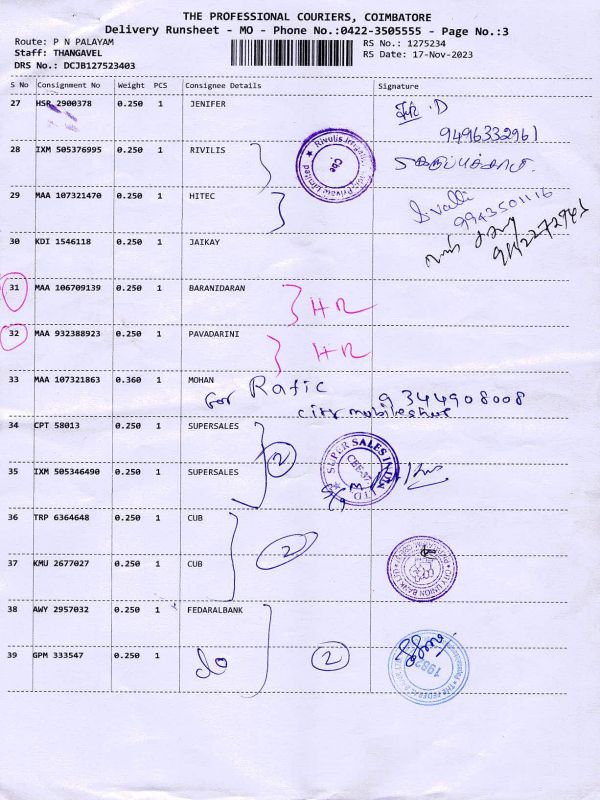 THE PROFESSIONAL COURIERS, COIMBATORE
Delivery Runsheet - MO - Phone No.:0422-3505555 - Page No.:3
Route: P N PALAYAM
RS No.: 1275234
Staff: THANGAVEL
RS Date: 17-Nov-2023
DRS No.: DCJB127523403
S No Consignment No Weight PCS Consignee Details Signature
27 HSR 2900378 0.250 1 JENIFER
9496332961
28 IXM 505376995 0.250 1 RIVILIS
29 MAA 107321470 0.250 1 HITEC
S. Valli
9943501116
30 KDI 1546118 0.250 1 JAIKAY
31 MAA 106709139 0.250 1 BARANIDARAN
32 MAA 932388923 0.250 1 PAVADARINI
33 MAA 107321863 0.360 1 MOHAN
for Rafic 9344908008
34 CPT 58013 0.250 1 SUPERSALES
2
SUPER SALES INDIA LTD.
35 IXM 505346490 0.250 1 SUPERSALES
36 TRP 6364648 0.250 1 CUB
2
37 KMU 2677027 0.250 1 CUB
CITY UNION BANK LTD
38 AWY 2957032 0.250 1 FEDARALBANK
39 GPM 333547 0.250 1 do
2
1982